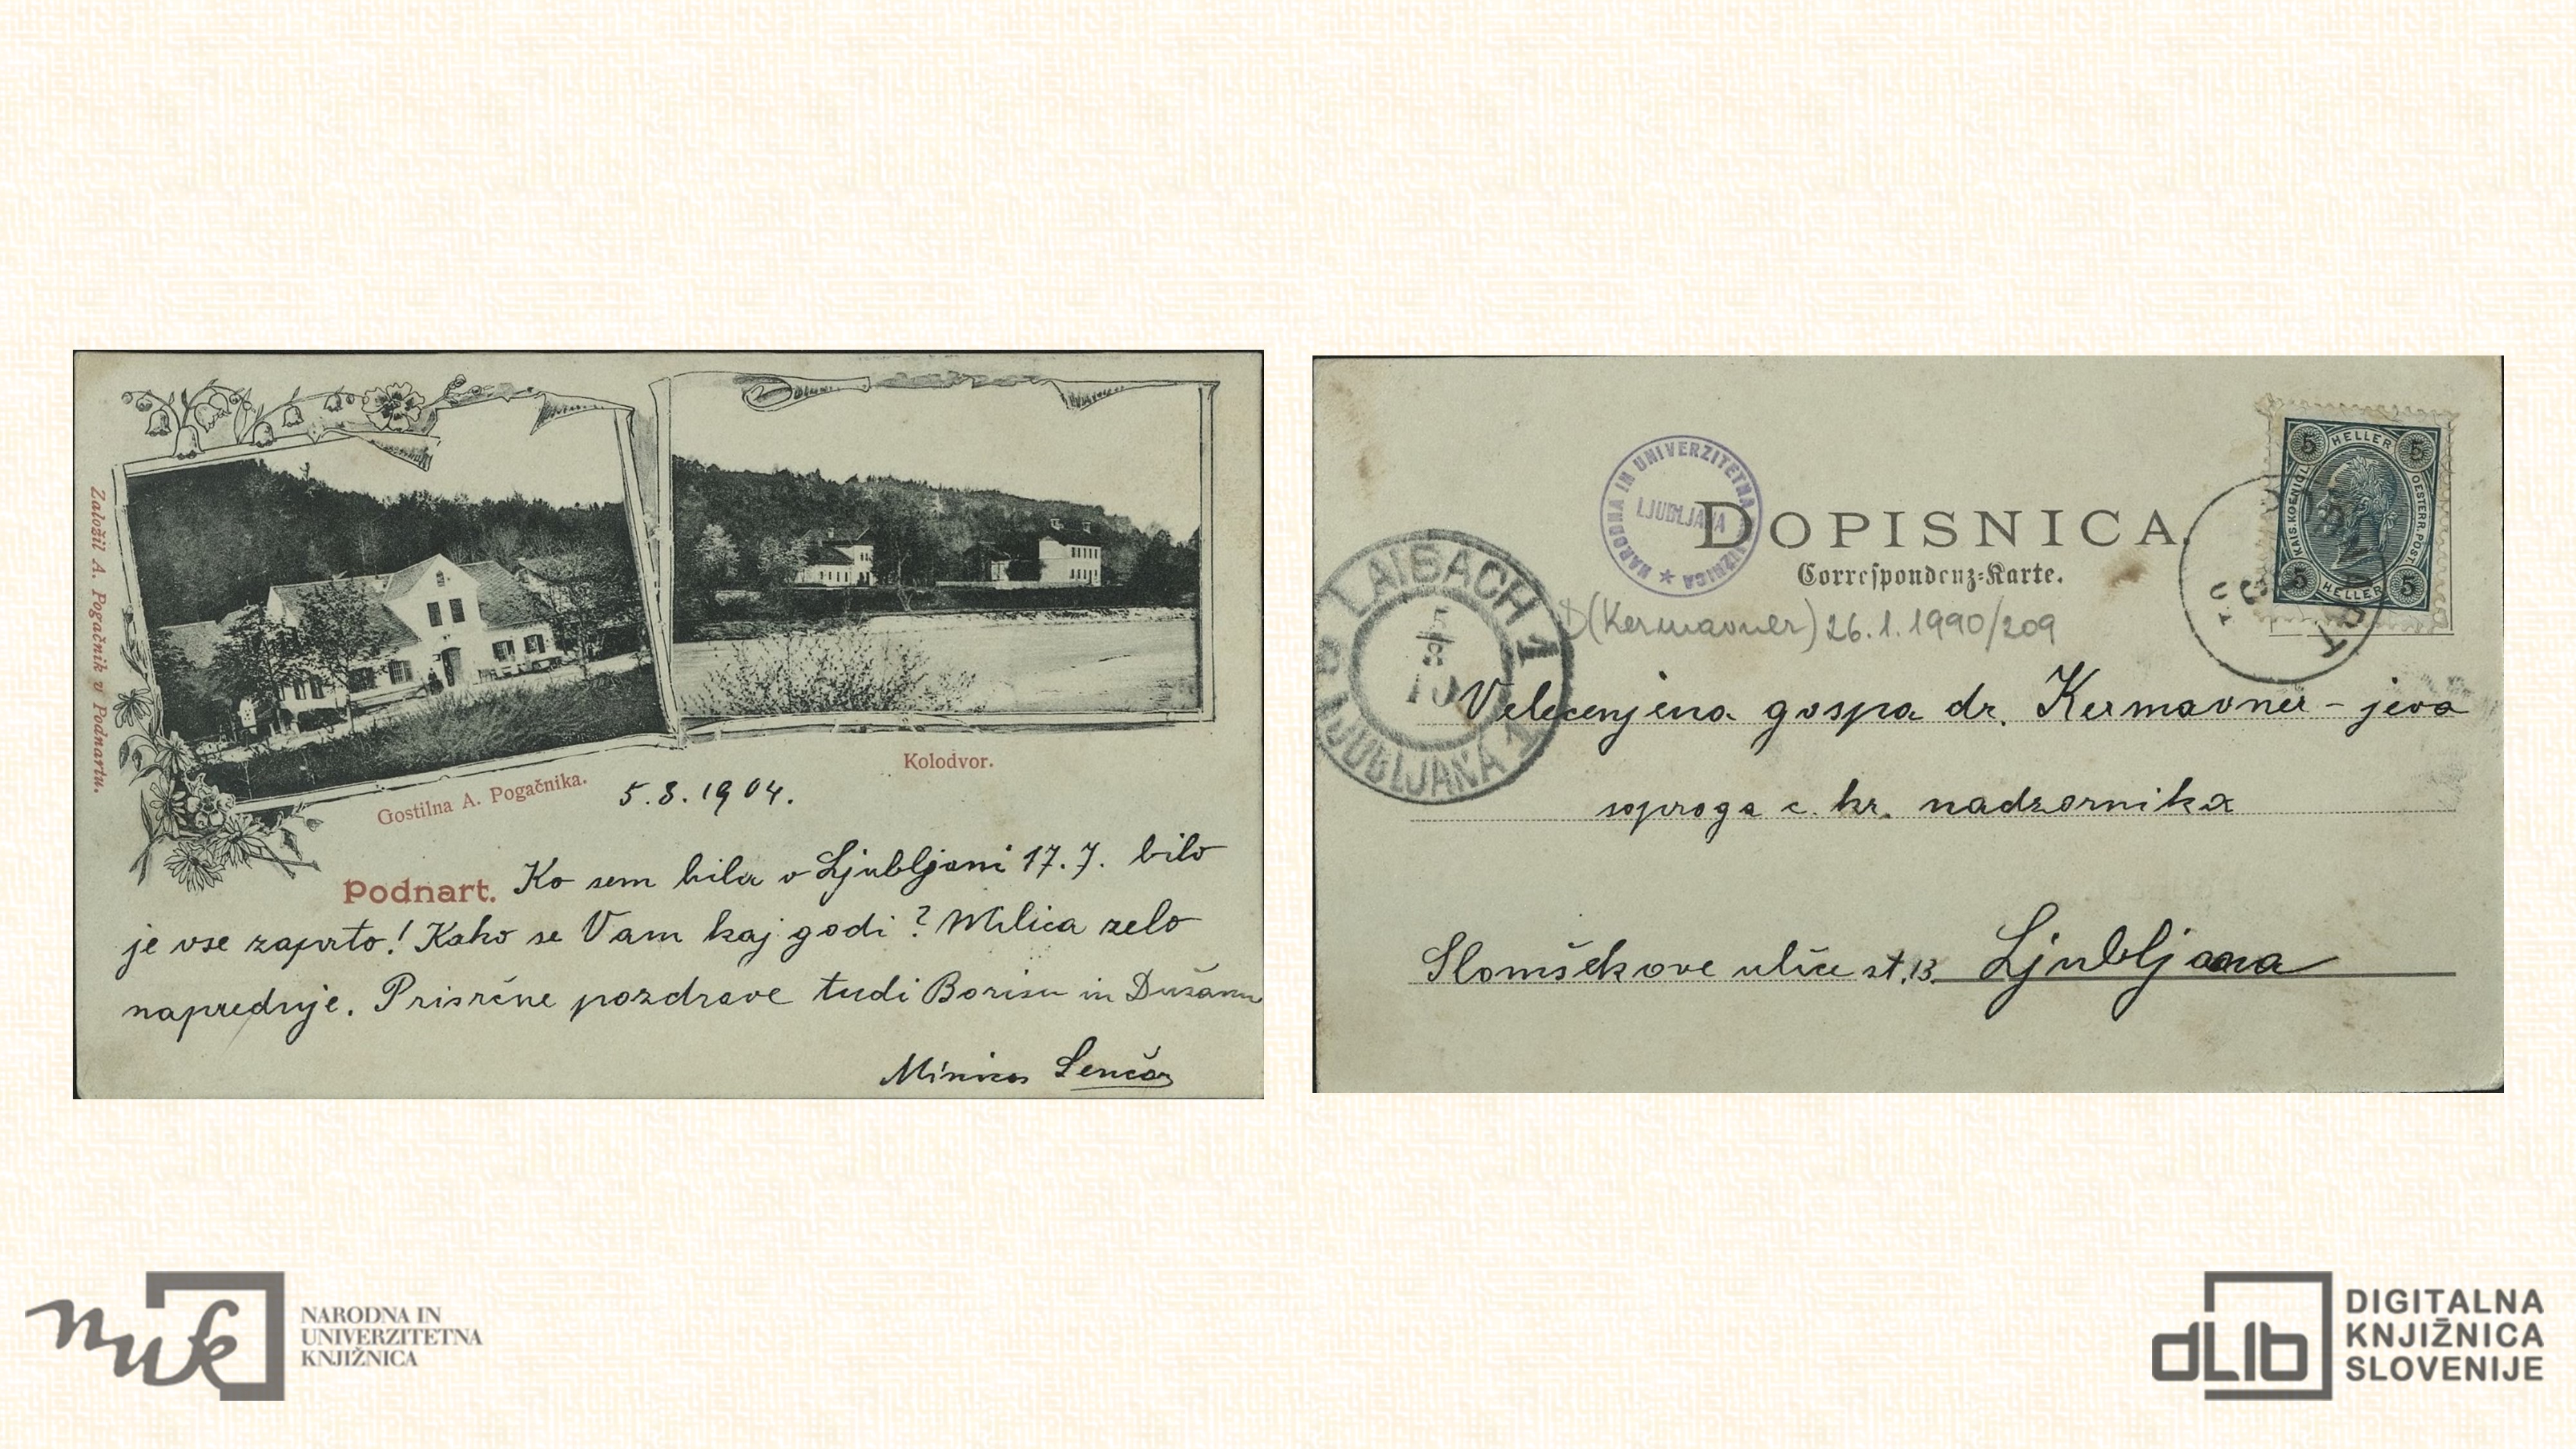 Založil A. Pogačnik v Podnartu.
Gostilna A. Pogačnika.
Kolodvor.
5. 8. 1904.
Podnart. Ko sem bila v Ljubljani 17. 7. bilo
je vse zaprto! Kako se Vam kaj godi? Milica zelo
napreduje. Prisrčne pozdrave tudi Borisu in Dušanu
Minica Lenčo
NARODNA IN UNIVERZITETNA KNJIŽNICA
LJUBLJANA
DOPISNICA.
Correspondenz-Karte.
5 HELLER 5
KAIS. KOENIGL. OESTERR. POST.
5 HELLER 5
LAIBACH 1
5
8
LJUBLJANA 1
D(Kermavner) 26.1.1990/209
Velecenjena gospa dr. Kermavner-jeva
soproga c. kr. nadzornika
Slomšekove ulice št. 13. Ljubljana
nuk
NARODNA IN
UNIVERZITETNA
KNJIŽNICA
dLib
DIGITALNA
KNJIŽNICA
SLOVENIJE